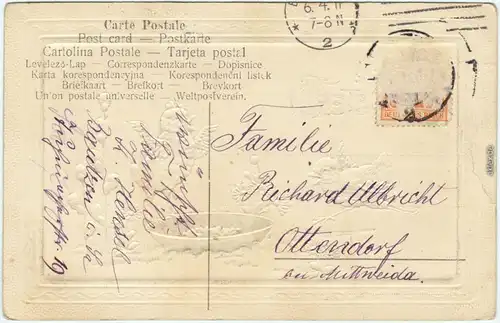 Carte Postale
Post card — Postkarte
Cartolina Postale — Tarjeta postal
Levelező-Lap — Correspondenzkarte — Dopisnice
Karta korespondencyjna — Korespondenční lístek
Briefkaart — Brefkort — Brevkort
Union postale universelle — Weltpostverein.
6.4.11
7-8 N
2
Familie
Richard Ulbricht
Ottendorf
bei Mittweida.
wünscht
Familie
Bautzen i. Sa
19